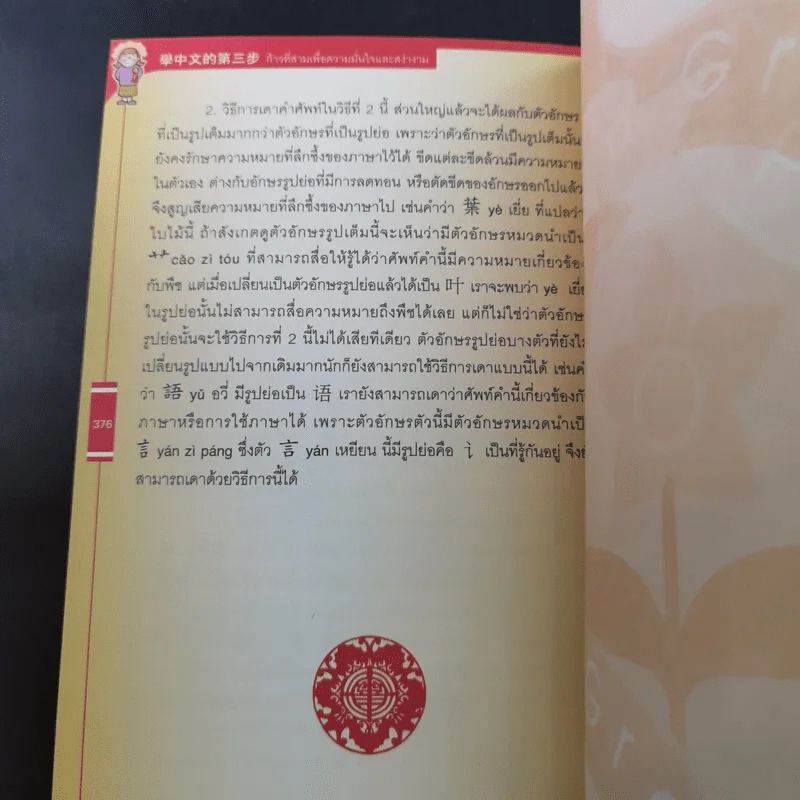 學中文的第三步 ก้าวที่สามเพื่อความมั่นใจและสง่างาม
2. วิธีการเดาคำศัพท์ในวิธีที่ 2 นี้ ส่วนใหญ่แล้วจะได้ผลกับตัวอักษร
ที่เป็นรูปเต็มมากกว่าตัวอักษรที่เป็นรูปย่อ เพราะว่าตัวอักษรที่เป็นรูปเต็มนั้น
ยังคงรักษาความหมายที่ลึกซึ้งของภาษาไว้ได้ ขีดแต่ละขีดล้วนมีความหมาย
ในตัวเอง ต่างกับอักษรรูปย่อที่มีการลดทอน หรือตัดขีดของอักษรออกไปแล้ว
จึงสูญเสียความหมายที่ลึกซึ้งของภาษาไป เช่นคำว่า 葉 yè เยี่ย ที่แปลว่า
ใบไม้นี้ ถ้าสังเกตดูตัวอักษรรูปเต็มนี้จะเห็นว่ามีตัวอักษรหมวดนำเป็น
艹 cǎo zì tóu ที่สามารถสื่อให้รู้ได้ว่าศัพท์คำนี้มีความหมายเกี่ยวข้อง
กับพืช แต่เมื่อเปลี่ยนเป็นตัวอักษรรูปย่อแล้วได้เป็น 叶 เราจะพบว่า yè
ในรูปย่อนั้นไม่สามารถสื่อความหมายถึงพืชได้เลย แต่ก็ไม่ใช่ว่าตัวอักษร
รูปย่อนั้นจะใช้วิธีการที่ 2 นี้ไม่ได้เสียทีเดียว ตัวอักษรรูปย่อบางตัวที่ยังไ
เปลี่ยนรูปแบบไปจากเดิมมากนักก็ยังสามารถใช้วิธีการเดาแบบนี้ได้ เช่นคำ
ว่า 語 yǔ อวี่ มีรูปย่อเป็น 语 เรายังสามารถเดาว่าศัพท์คำนี้เกี่ยวข้องกั
ภาษาหรือการใช้ภาษาได้ เพราะตัวอักษรตัวนี้มีตัวอักษรหมวดนำเป็
言 yán zì páng ซึ่งตัว 言 yán เหยียน นี้มีรูปย่อคือ 讠 เป็นที่รู้กันอยู่ จึงย
สามารถเดาด้วยวิธีการนี้ได้
376